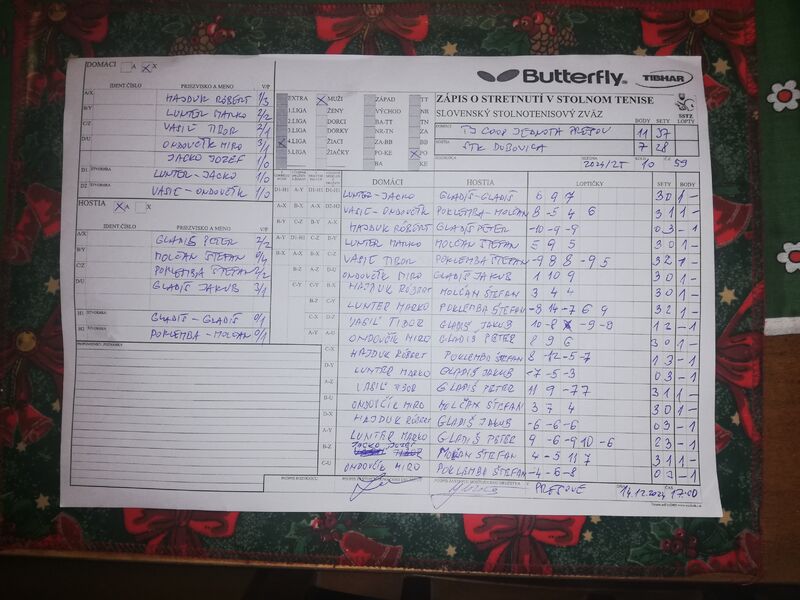 DOMÁCI A X
IDENT.ČÍSLO PRIEZVISKO A MENO V/P
A/X HAJDUK RÓBERT 1/3
B/Y LUNTER MARKO 2/2
C/Z VASIĽ TIBOR 2/1
D/U ONDOVČÍK MIRO 3/1
JACKO JOZEF 1/0
D1 ŠTVORHRA LUNTER-JACKO 1/0
D2 ŠTVORHRA VASIĽ-ONDOVČÍK 1/0
HOSTIA A X
IDENT.ČÍSLO PRIEZVISKO A MENO V/P
A/X GLADIŠ PETER 2/2
B/Y MOLČAN ŠTEFAN 0/4
C/Z POKLEMBA ŠTEFAN 2/2
D/U GLADIŠ JAKUB 3/1
H1 ŠTVORHRA GLADIŠ-GLADIŠ 0/1
H2 ŠTVORHRA POKLEMBA-MOLČAN 0/1
PRIPOMIENKY - POZNÁMKY
Butterfly TIBHAR
EXTRA MUŽI ZÁPAD TT
1.LIGA ŽENY VÝCHOD NR
2.LIGA DORCI BA-TT TN
3.LIGA DORKY NR-TN ZA
4.LIGA ŽIACI ZA-BB BB
5.LIGA ŽIAČKY PO-KE PO
BA KE
ZÁPIS O STRETNUTÍ V STOLNOM TENISE
SLOVENSKÝ STOLNOTENISOVÝ ZVÄZ
SSTZ
BODY SETY LOPTY
DOMÁCI TJ COOP JEDNOTA PREŠOV 11 37
HOSTIA STK DUBOVICA 7 28
2024/25 KOLO 10 59
DOMÁCI HOSTIA LOPTIČKY SETY BODY
LUNTER-JACKO GLADIŠ-GLADIŠ 6 9 7 3 0 1 -
VASIĽ-ONDOVČÍK POKLEMBA-MOLČAN 8 -5 4 6 3 1 1 -
HAJDUK RÓBERT GLADIŠ PETER -10 -9 -9 0 3 - 1
LUNTER MARKO MOLČAN ŠTEFAN 5 9 5 3 0 1 -
VASIĽ TIBOR POKLEMBA ŠTEFAN -9 8 8 -9 5 3 2 1 -
ONDOVČÍK MIRO GLADIŠ JAKUB 1 10 9 3 0 1 -
HAJDUK RÓBERT MOLČAN ŠTEFAN 3 4 3 0 1 -
LUNTER MARKO POKLEMBA ŠTEFAN -9 14 -7 6 9 3 2 1 -
VASIĽ TIBOR GLADIŠ JAKUB 10 -8 -9 -9 - 1
ONDOVČÍK MIRO GLADIŠ PETER 8 9 6 3 0 1 -
HAJDUK RÓBERT POKLEMBA ŠTEFAN 8 -12 -5 -7 1 3 - 1
LUNTER MARKO GLADIŠ JAKUB -7 -5 -3 0 3 - 1
VASIĽ TIBOR GLADIŠ PETER 11 9 -7 7 3 1 1 -
ONDOVČÍK MIRO MOLČAN ŠTEFAN 3 7 4 3 0 1 -
HAJDUK RÓBERT GLADIŠ JAKUB -6 -6 -6 0 3 - 1
LUNTER MARKO GLADIŠ PETER 9 -6 -9 10 -6 2 3 - 1
JACKO JOZEF MOLČAN ŠTEFAN 4 -5 11 7 3 1 1 -
ONDOVČÍK MIRO POKLEMBA ŠTEFAN -4 -6 -8 0 3 - 1
PREŠOVE 14.12.2024 17:00